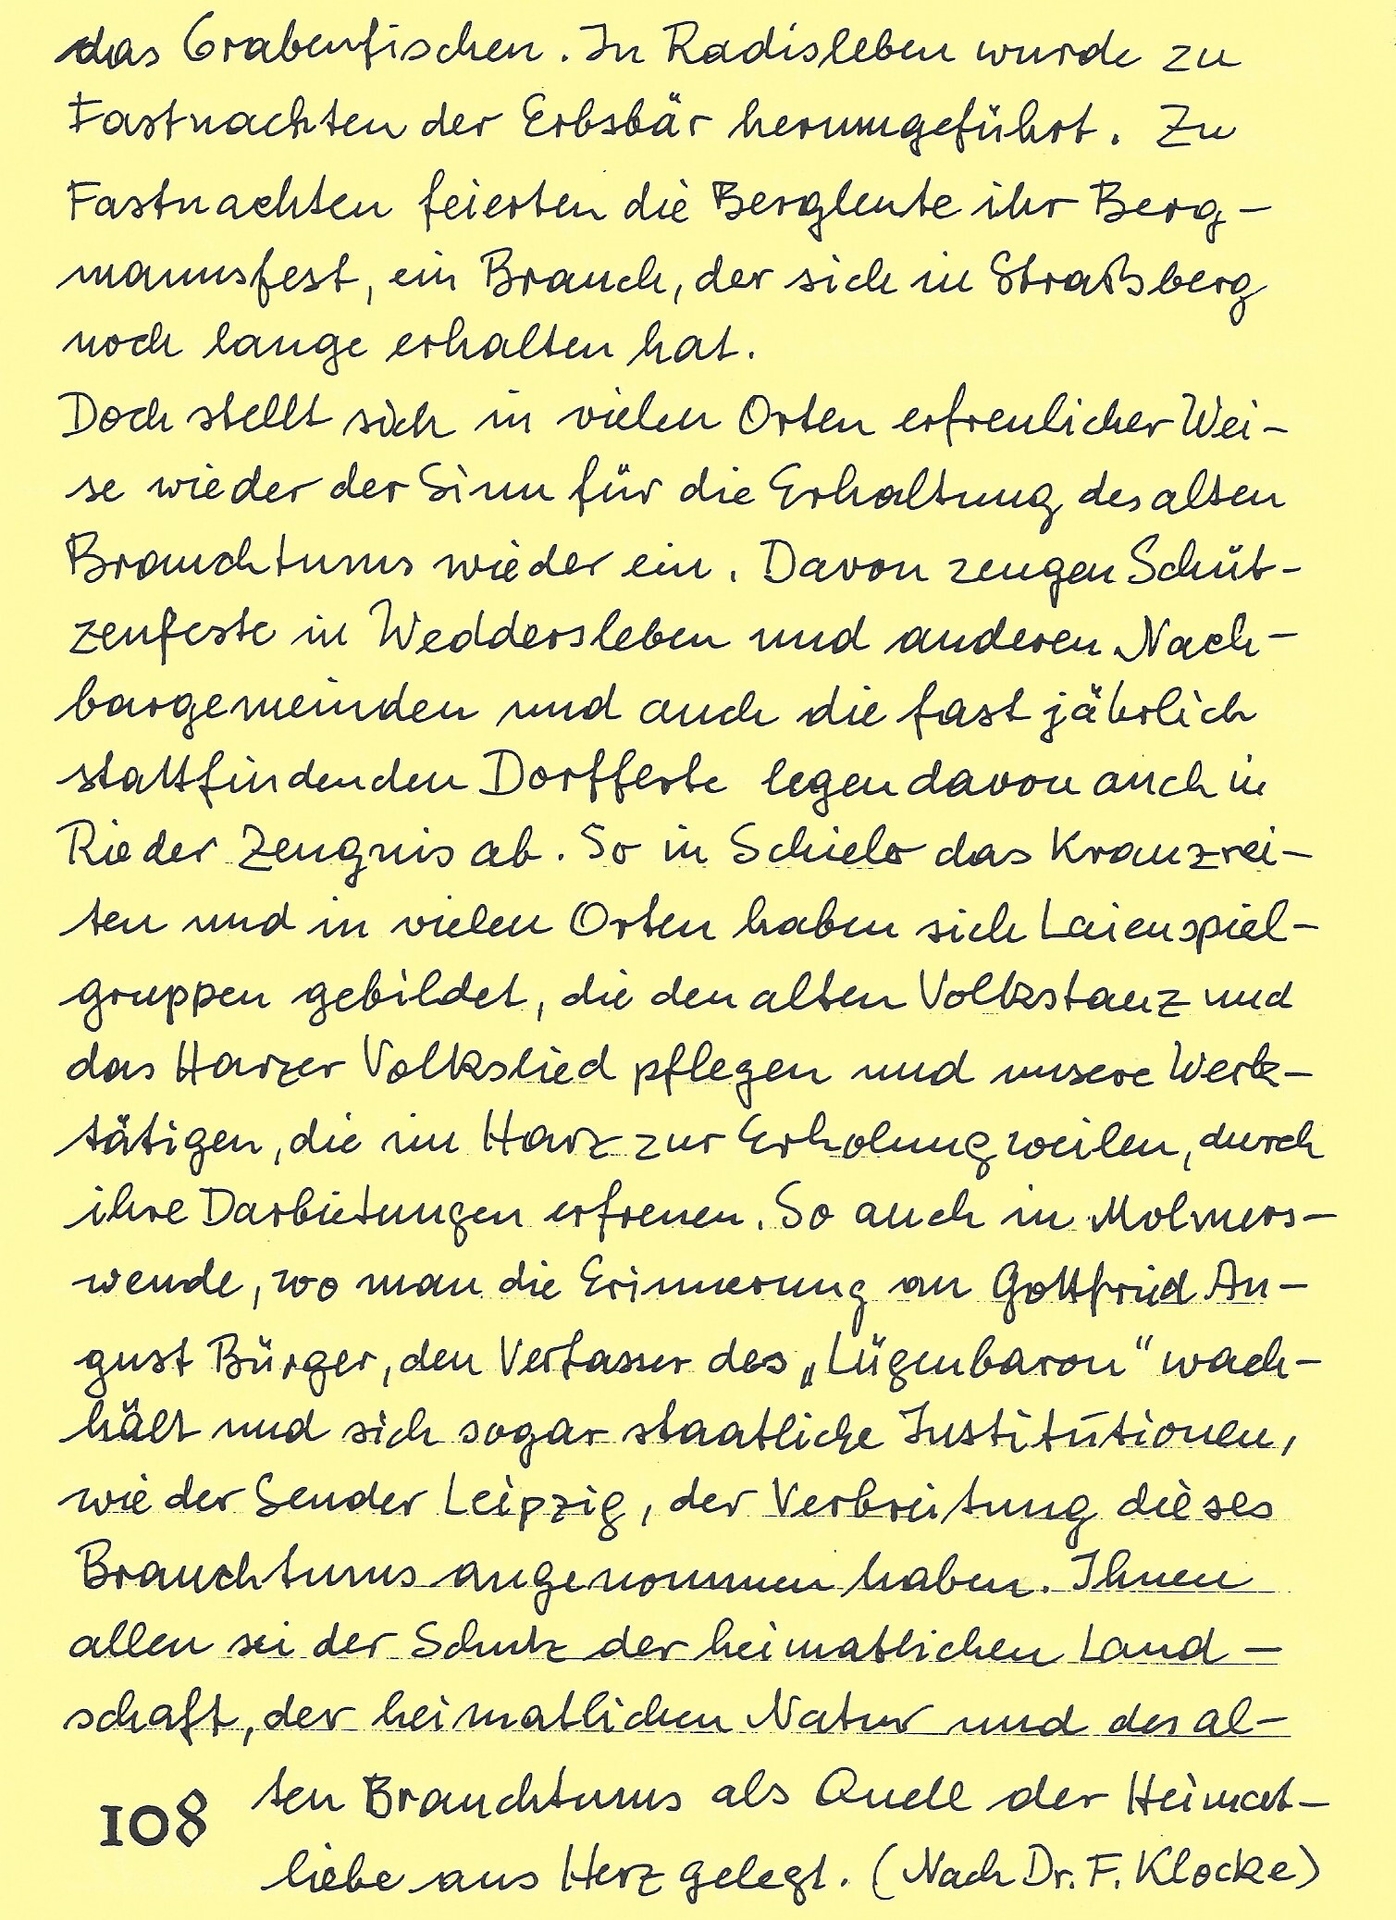 das Grabenfischen. In Radisleben wurde zu
Fastnachten der Erbsbär herumgeführt. Zu
Fastnachten feierten die Bergleute ihr Berg-
mannsfest, ein Brauch, der sich in Straßberg
noch lange erhalten hat.
Doch stellt sich in vielen Orten erfreulicher Wei-
se wieder der Sinn für die Erhaltung des alten
Brauchtums wieder ein. Davon zeugen Schüt-
zenfeste in Weddersleben und anderen Nach-
bargemeinden und auch die fast jährlich
stattfindenden Dorffeste legen davon auch in
Rieder Zeugnis ab. So in Schielo das Kranzrei-
ten und in vielen Orten haben sich Laienspiel-
gruppen gebildet, die den alten Volkstanz und
das Harzer Volkslied pflegen und unsere Werk-
tätigen, die im Harz zur Erholung weilen, durch
ihre Darbietungen erfreuen. So auch in Molmers-
wende, wo man die Erinnerung an Gottfried Au-
gust Bürger, den Verfasser des „Lügenbaron“ wach-
hält und sich sogar staatliche Institutionen,
wie der Sender Leipzig, der Verbreitung dieses
Brauchtums angenommen haben. Ihnen
allen sei der Schutz der heimatlichen Land-
schaft, der heimatlichen Natur und des al-
ten Brauchtums als Quell der Heimat-
liebe ans Herz gelegt. (Nach Dr. F. Klocke)
108